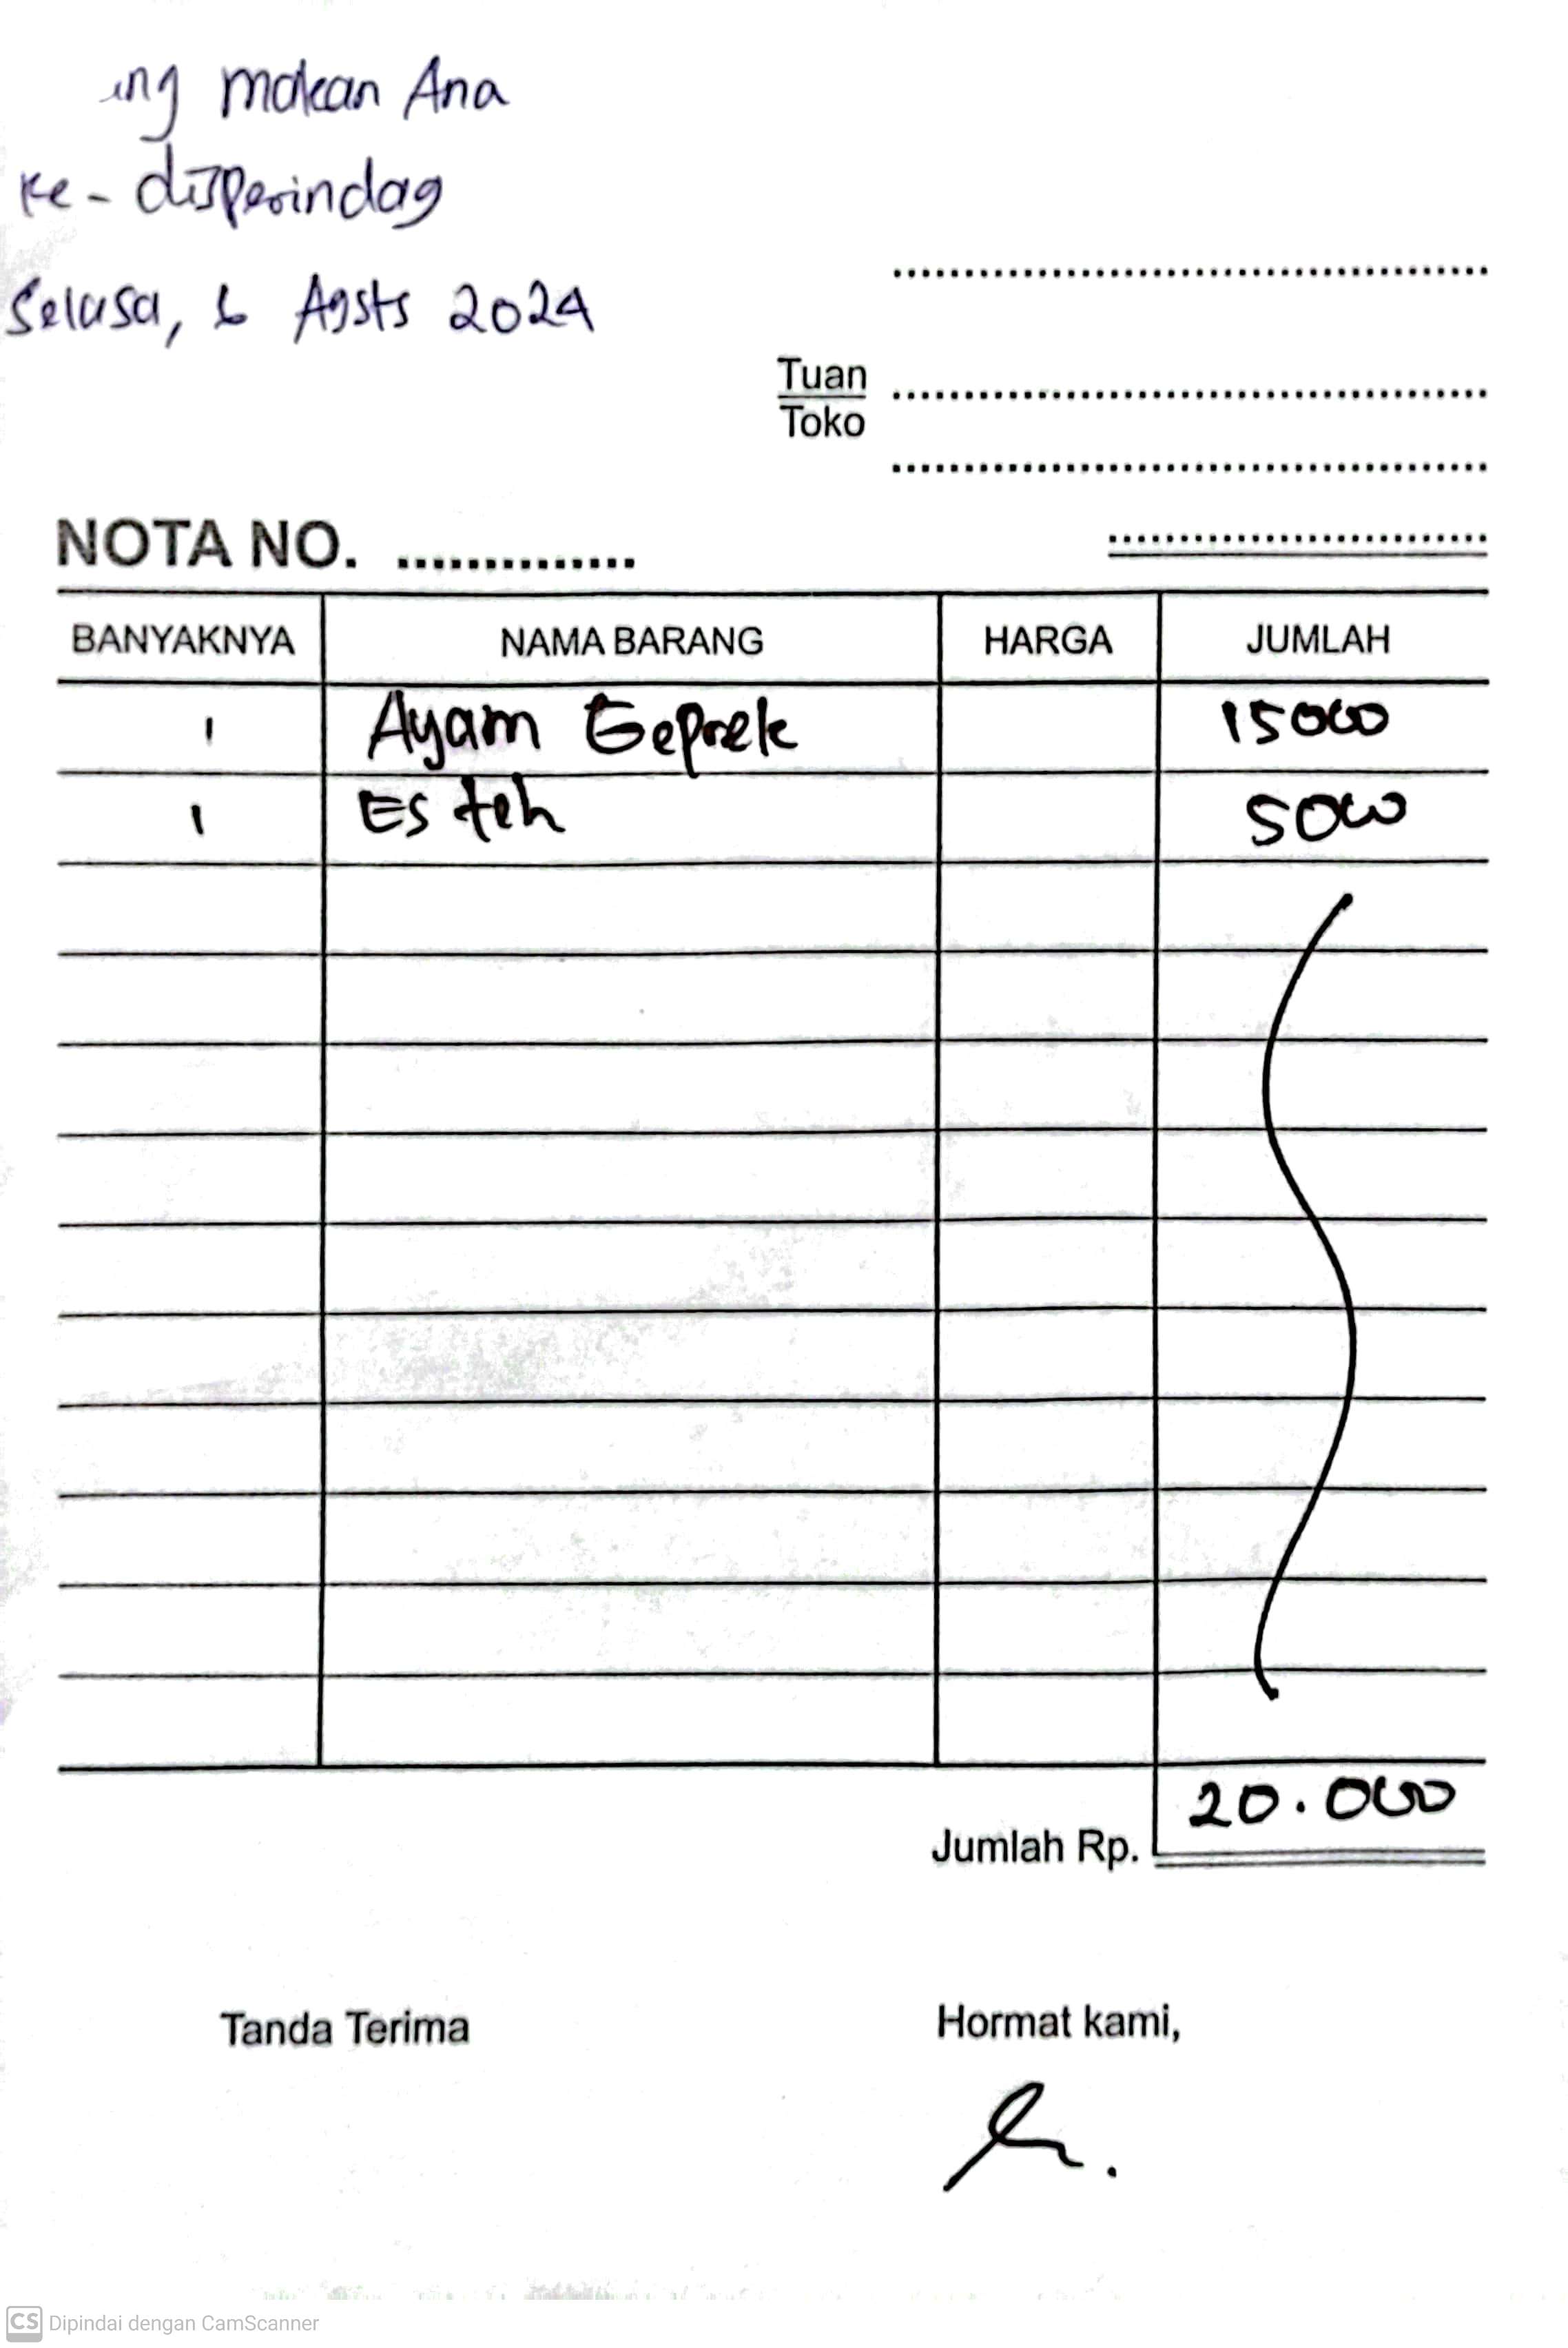 ing makan Ana
ke - disperindag
Selasa, 6 Agsts 2024
Tuan
Toko
NOTA NO. ..............
BANYAKNYA NAMA BARANG HARGA JUMLAH
1 Ayam Geprek 15000
1 Es teh 5000
Jumlah Rp. 20.000
Tanda Terima Hormat kami,
CS Dipindai dengan CamScanner